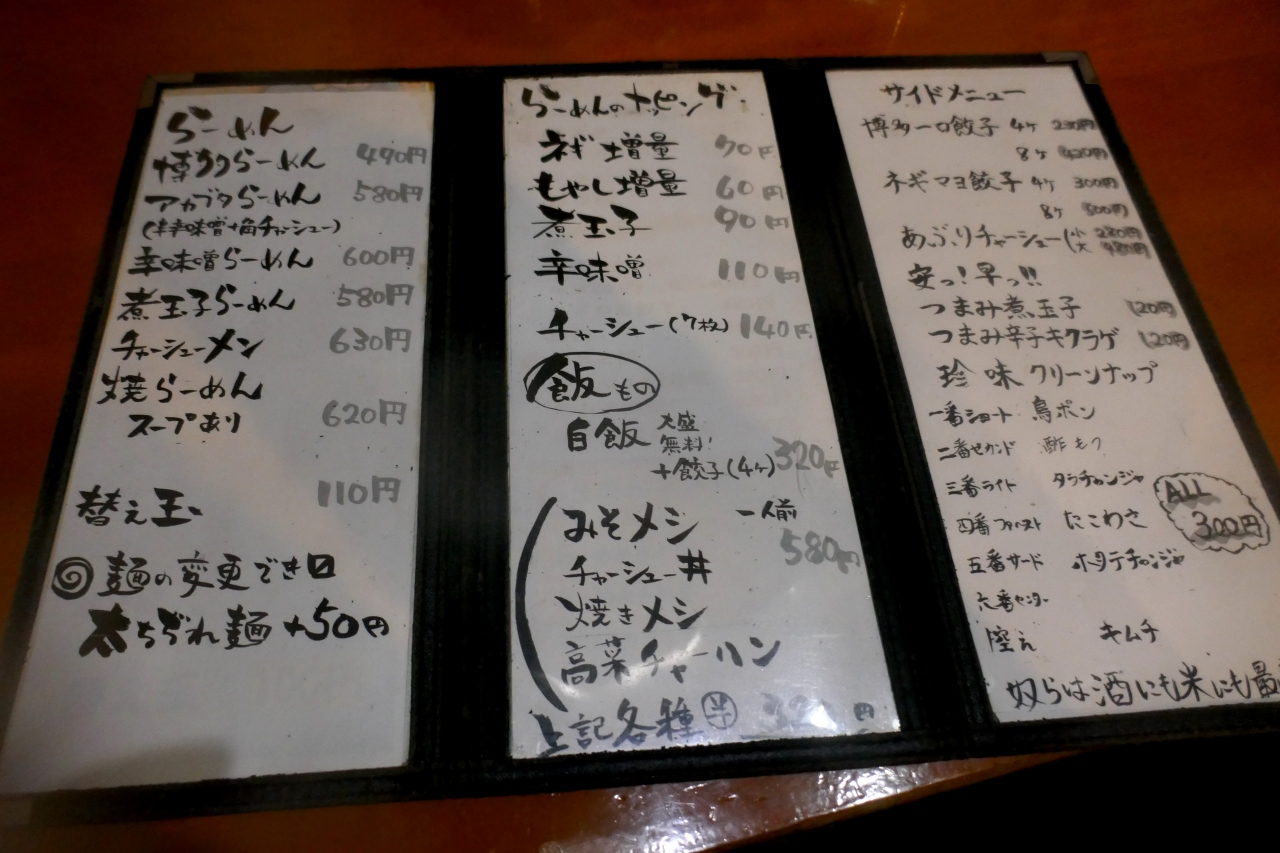 らーめん
博多らーめん 490円
アカブタらーめん 580円
(辛味噌+角チャーシュー)
辛味噌らーめん 600円
煮玉子らーめん 580円
チャーシューメン 630円
焼らーめん
スープあり 620円
替え玉 110円
麺の変更でき□
太ちぢれ麺 +50円
らーめんのトッピング
ネギ増量 70円
もやし増量 60円
煮玉子 90円
辛味噌 110円
チャーシュー(7枚) 140円
飯もの
白飯 大盛
無料!
+餃子(4ヶ) 320円
みそメシ 一人前
580円
チャーシュー丼
焼きメシ
高菜チャーハン
上記各種 半 円
サイドメニュー
博多一口餃子 4ヶ 230円
8ヶ 420円
ネギマヨ餃子 4ヶ 300円
8ヶ 500円
あぶりチャーシュー(小 280円
大 480円
安っ!早っ!!
つまみ煮玉子 120円
つまみ辛子キクラゲ 120円
珍味クリーンナップ
一番ショート 鳥ポン
二番セカンド 酢もつ
三番ライト タラチャンジャ
四番ファースト たこわさ
五番サード ホタテチャンジャ
六番センター
控え キムチ
ALL
300円
奴らは酒にも米にも最